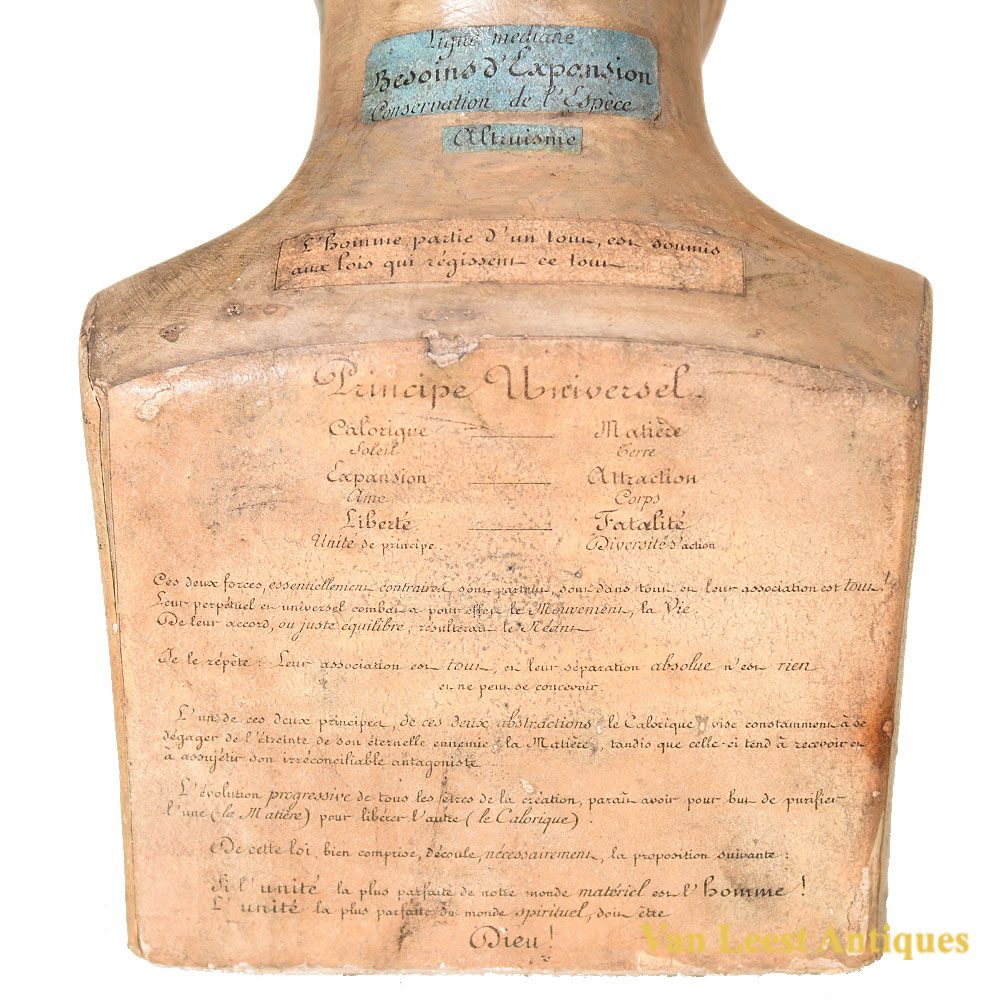 Ligne médiane
Besoins d'Expansion
Conservation de l'Espèce
Altruisme
L'homme partie d'un tout, est soumis
aux lois qui régissent ce tout
Principe Universel.
Calorique ——— Matière
Soleil Terre
Expansion ——— Attraction
Ame Corps
Liberté ——— Fatalité
Unité de principe. Diversité d'action.
Ces deux forces, essentiellement contraires, sont partout, sont dans tout, et leur association est tout!
Leur perpétuel et universel combat a pour effet le Mouvement, la Vie.
De leur accord, ou juste équilibre, résulterait le Néant.
Je le répète: Leur association est tout, et leur séparation absolue n'est rien
et ne peut se concevoir.
L'un de ces deux principes, de ces deux abstractions (le Calorique) vise constamment à se
dégager de l'étreinte de son éternelle ennemie (la Matière), tandis que celle-ci tend à recevoir et
à assujétir son irréconciliable antagoniste.
L'évolution progressive de tous les êtres de la création, parait avoir pour but de purifier
l'une (la Matière) pour libérer l'autre (le Calorique).
De cette loi, bien comprise, découle, nécessairement, la proposition suivante:
Si l'unité la plus parfaite de notre monde matériel est l'homme!
L'unité la plus parfaite du monde spirituel, doit être
Dieu!
Van Leest Antiques